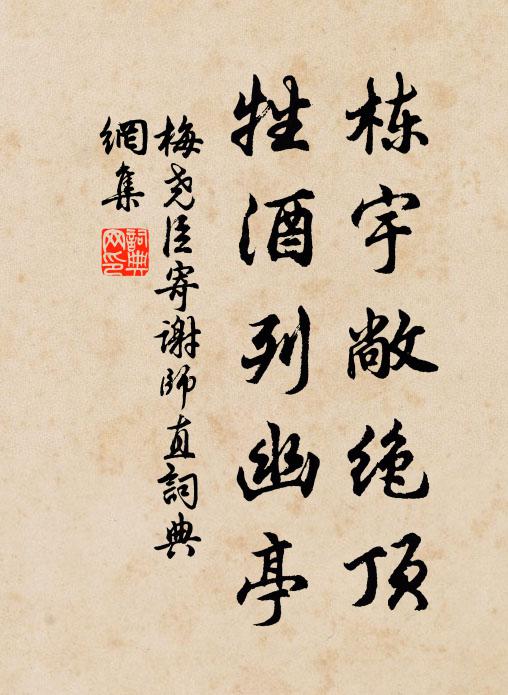 栋宇敞绝顶
牲酒列幽亭
梅尧臣寄谢师直詞典
網集
詞典
网印